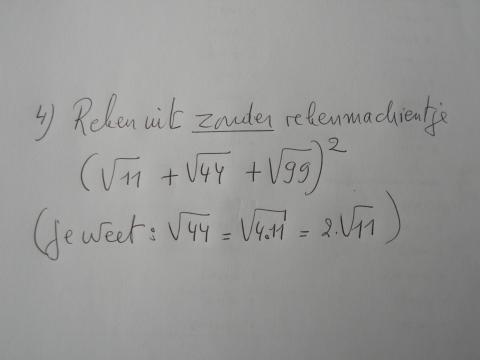 4) Reken uit zonder rekenmachientje
(√11 + √44 + √99)²
(je weet : √44 = √4.11 = 2.√11)